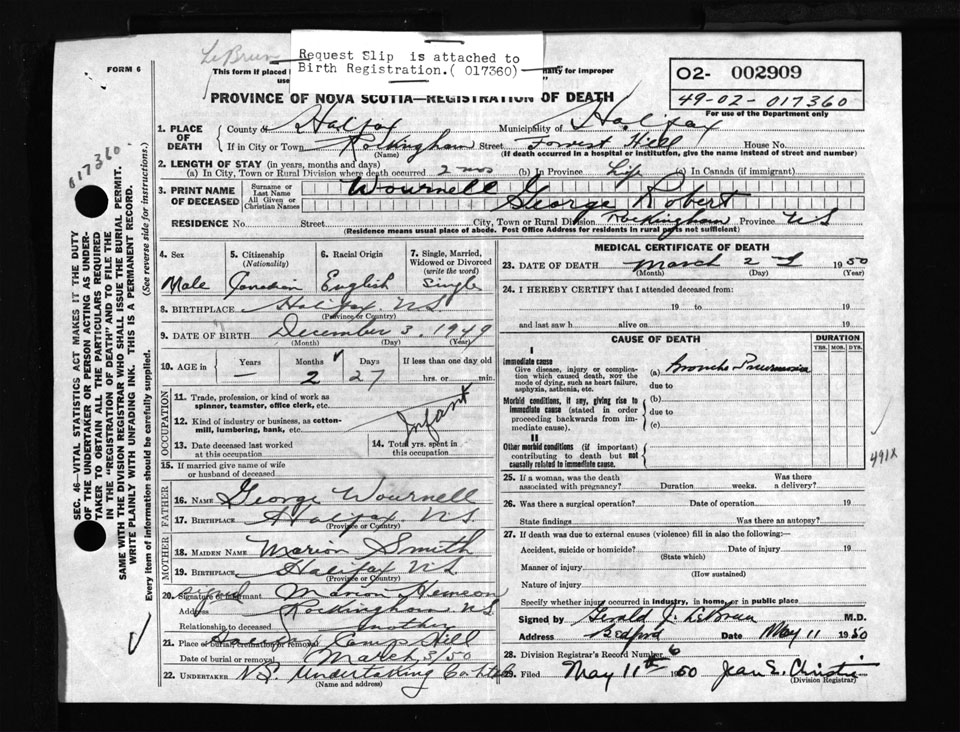 LeBrun
Request Slip is attached to
Birth Registration.( 017360)
FORM 6
This form if placed
use
nalty for improper
02- 002909
49-02-017360
For use of the Department only
PROVINCE OF NOVA SCOTIA—REGISTRATION OF DEATH
1. PLACE OF DEATH County of Halifax Municipality of Halifax
If in City or Town Rockingham Street Forrest Hill House No.
(Name) (If death occurred in a hospital or institution, give the name instead of street and number)
2. LENGTH OF STAY (in years, months and days)
(a) In City, Town or Rural Division where death occurred 2 mos (b) In Province Life (c) In Canada (if immigrant)
3. PRINT NAME OF DECEASED Surname or Last Name Wournell
All Given or Christian Names George Robert
RESIDENCE No. Street City, Town or Rural Division Rockingham Province NS
(Residence means usual place of abode. Post Office Address for Residents in rural parts not sufficient)
4. Sex 5. Citizenship (Nationality) 6. Racial Origin 7. Single, Married, Widowed or Divorced (write the word)
Male Canadian English Single
8. BIRTHPLACE Halifax N.S.
(Province or Country)
9. DATE OF BIRTH December 3, 1949
(Month) (Day) (Year)
10. AGE in Years Months Days If less than one day old
— 2 27 hrs. or min.
11. Trade, profession, or kind of work as spinner, teamster, office clerk, etc.
12. Kind of industry or business, as cotton-mill, lumbering, bank, etc.
Infant
13. Date deceased last worked at this occupation
14. Total yrs. spent in this occupation
15. If married give name of wife or husband of deceased
FATHER
16. NAME George Wournell
17. BIRTHPLACE Halifax N.S.
(Province or Country)
MOTHER
18. MAIDEN NAME Marion Smith
19. BIRTHPLACE Halifax N.S.
(Province or Country)
20. signed Signature of informant Marion
Address Rockingham N.S.
Relationship to deceased mother
21. Place of burial, cremation or removal Halifax Camp Hill
Date of burial or removal March 3/50
22. UNDERTAKER N.S. Undertaking Co
(Name and address)
MEDICAL CERTIFICATE OF DEATH
23. DATE OF DEATH March 2 1950
(Month) (Day) (Year)
24. I HEREBY CERTIFY that I attended deceased from:
19 to 19
and last saw h alive on 19
CAUSE OF DEATH DURATION
YRS. MOS. DYS.
I
Immediate cause
Give disease, injury or complication which caused death, NOT the mode of dying, such as heart failure, asphyxia, asthenia, etc.
(a) Broncho-Pneumonia
due to
Morbid conditions, if any, giving rise to immediate cause (stated in order proceeding backwards from immediate cause).
(b)
due to
(c)
II
Other morbid conditions (if important) contributing to death but not causally related to immediate cause.
491X
25. If a woman, was the death associated with pregnancy? Duration weeks. Was there a delivery?
26. Was there a surgical operation? Date of operation 19
State findings Was there an autopsy?
27. If death was due to external causes (violence) fill in also the following:—
Accident, suicide or homicide? Date of injury 19
(State which)
Manner of injury
(How sustained)
Nature of injury
Specify whether injury occurred in industry, in home, or in public place
Signed by Gerald J. LeBrun M.D.
Address Bedford Date May 11 1950
28. Division Registrar's Record Number 6
29. Filed May 11th 1950 Jean E. Christie
(Division Registrar)
017360
SEC. 46—VITAL STATISTICS ACT MAKES IT THE DUTY
OF THE UNDERTAKER OR PERSON ACTING AS UNDER-
TAKER TO OBTAIN ALL THE PARTICULARS REQUIRED
IN THE "REGISTRATION OF DEATH" AND TO FILE THE
SAME WITH THE DIVISION REGISTRAR WHO SHALL ISSUE THE BURIAL PERMIT.
WRITE PLAINLY WITH UNFADING INK. THIS IS A PERMANENT RECORD.
Every item of information should be carefully supplied. (See reverse side for instructions.)